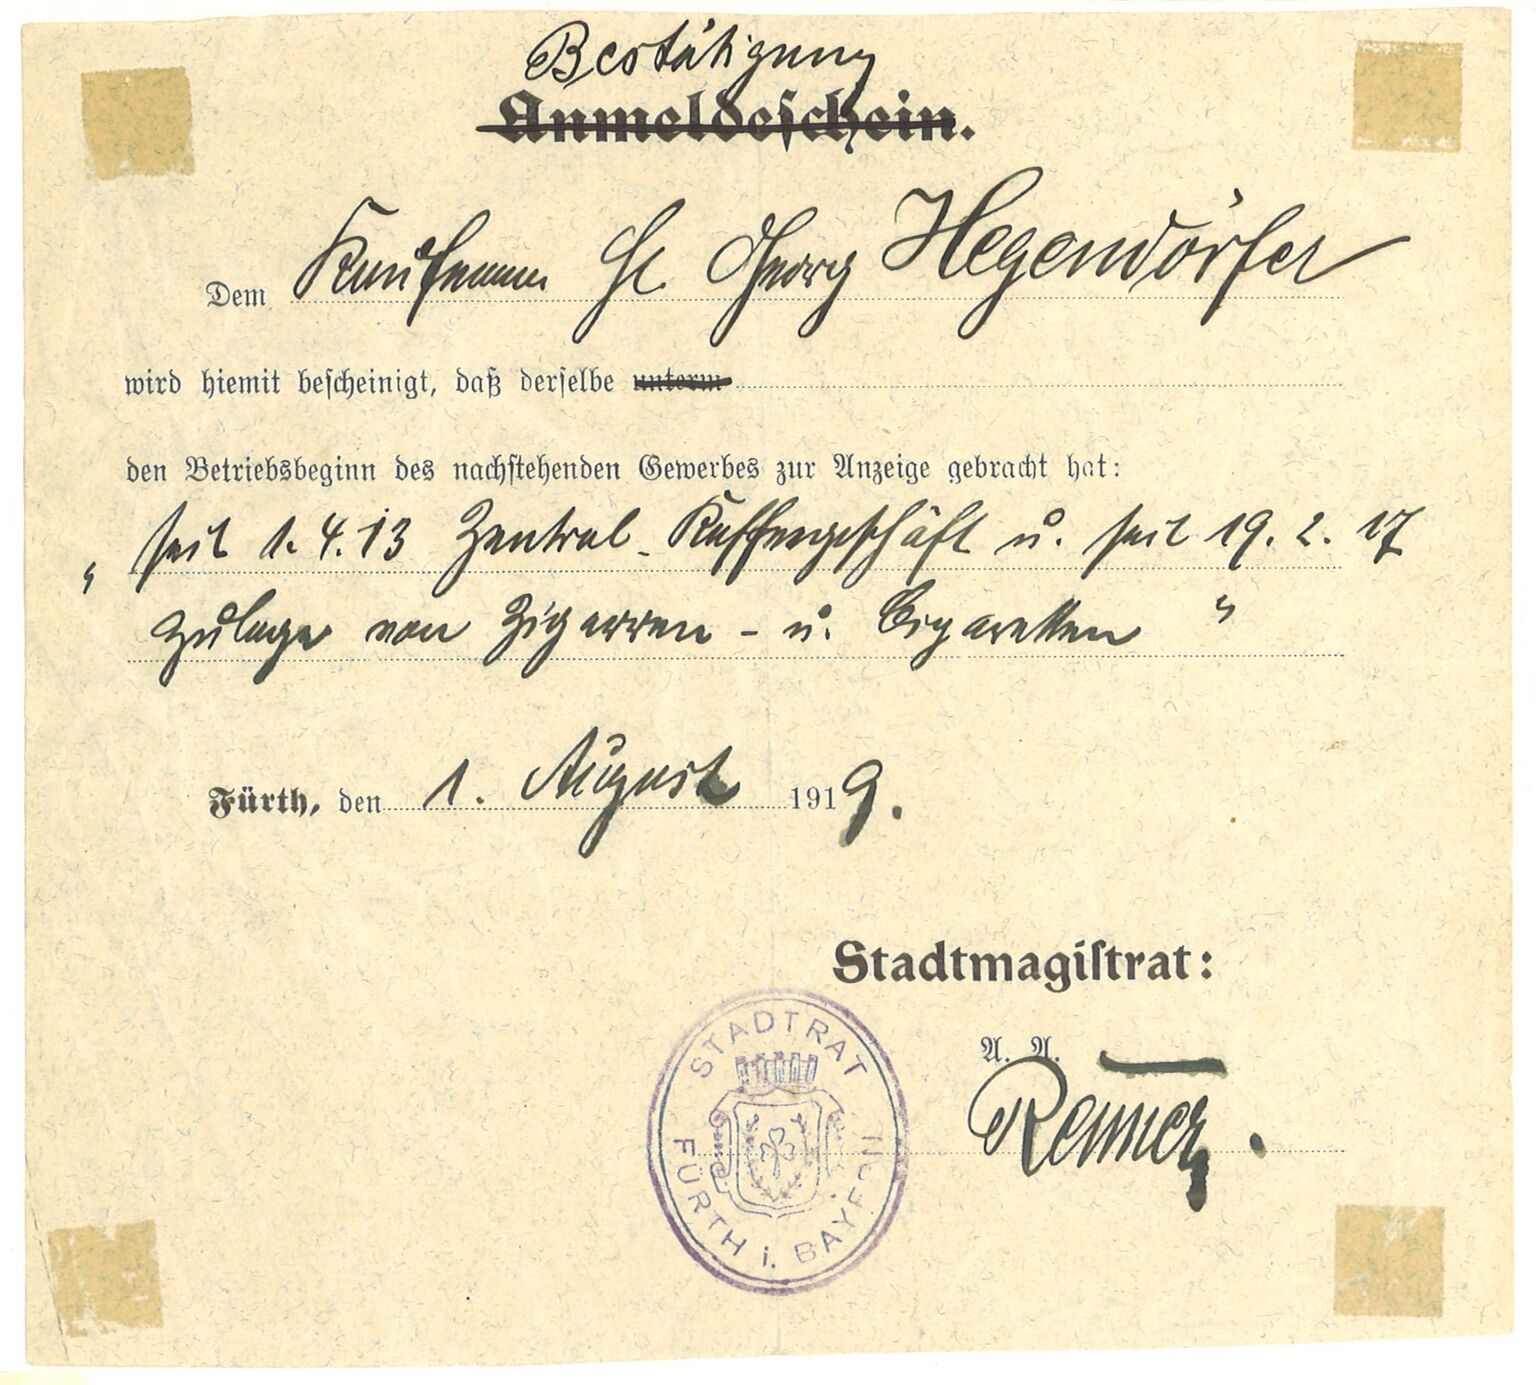 Bestätigung
Anmeldeschein.
Dem Kaufmann H. Georg Hegendörfer
wird hiemit bescheinigt, daß derselbe unterm
den Betriebsbeginn des nachstehenden Gewerbes zur Anzeige gebracht hat:
„ seit 1.4.13 Zentral-Kaffeegeschäft u. seit 19.2.17
Zulage von Zigarren- u. Cigaretten "
Fürth, den 1. August 1919.
Stadtmagistrat:
A. A.
Renner.
STADTRAT
FÜRTH i. BAYERN